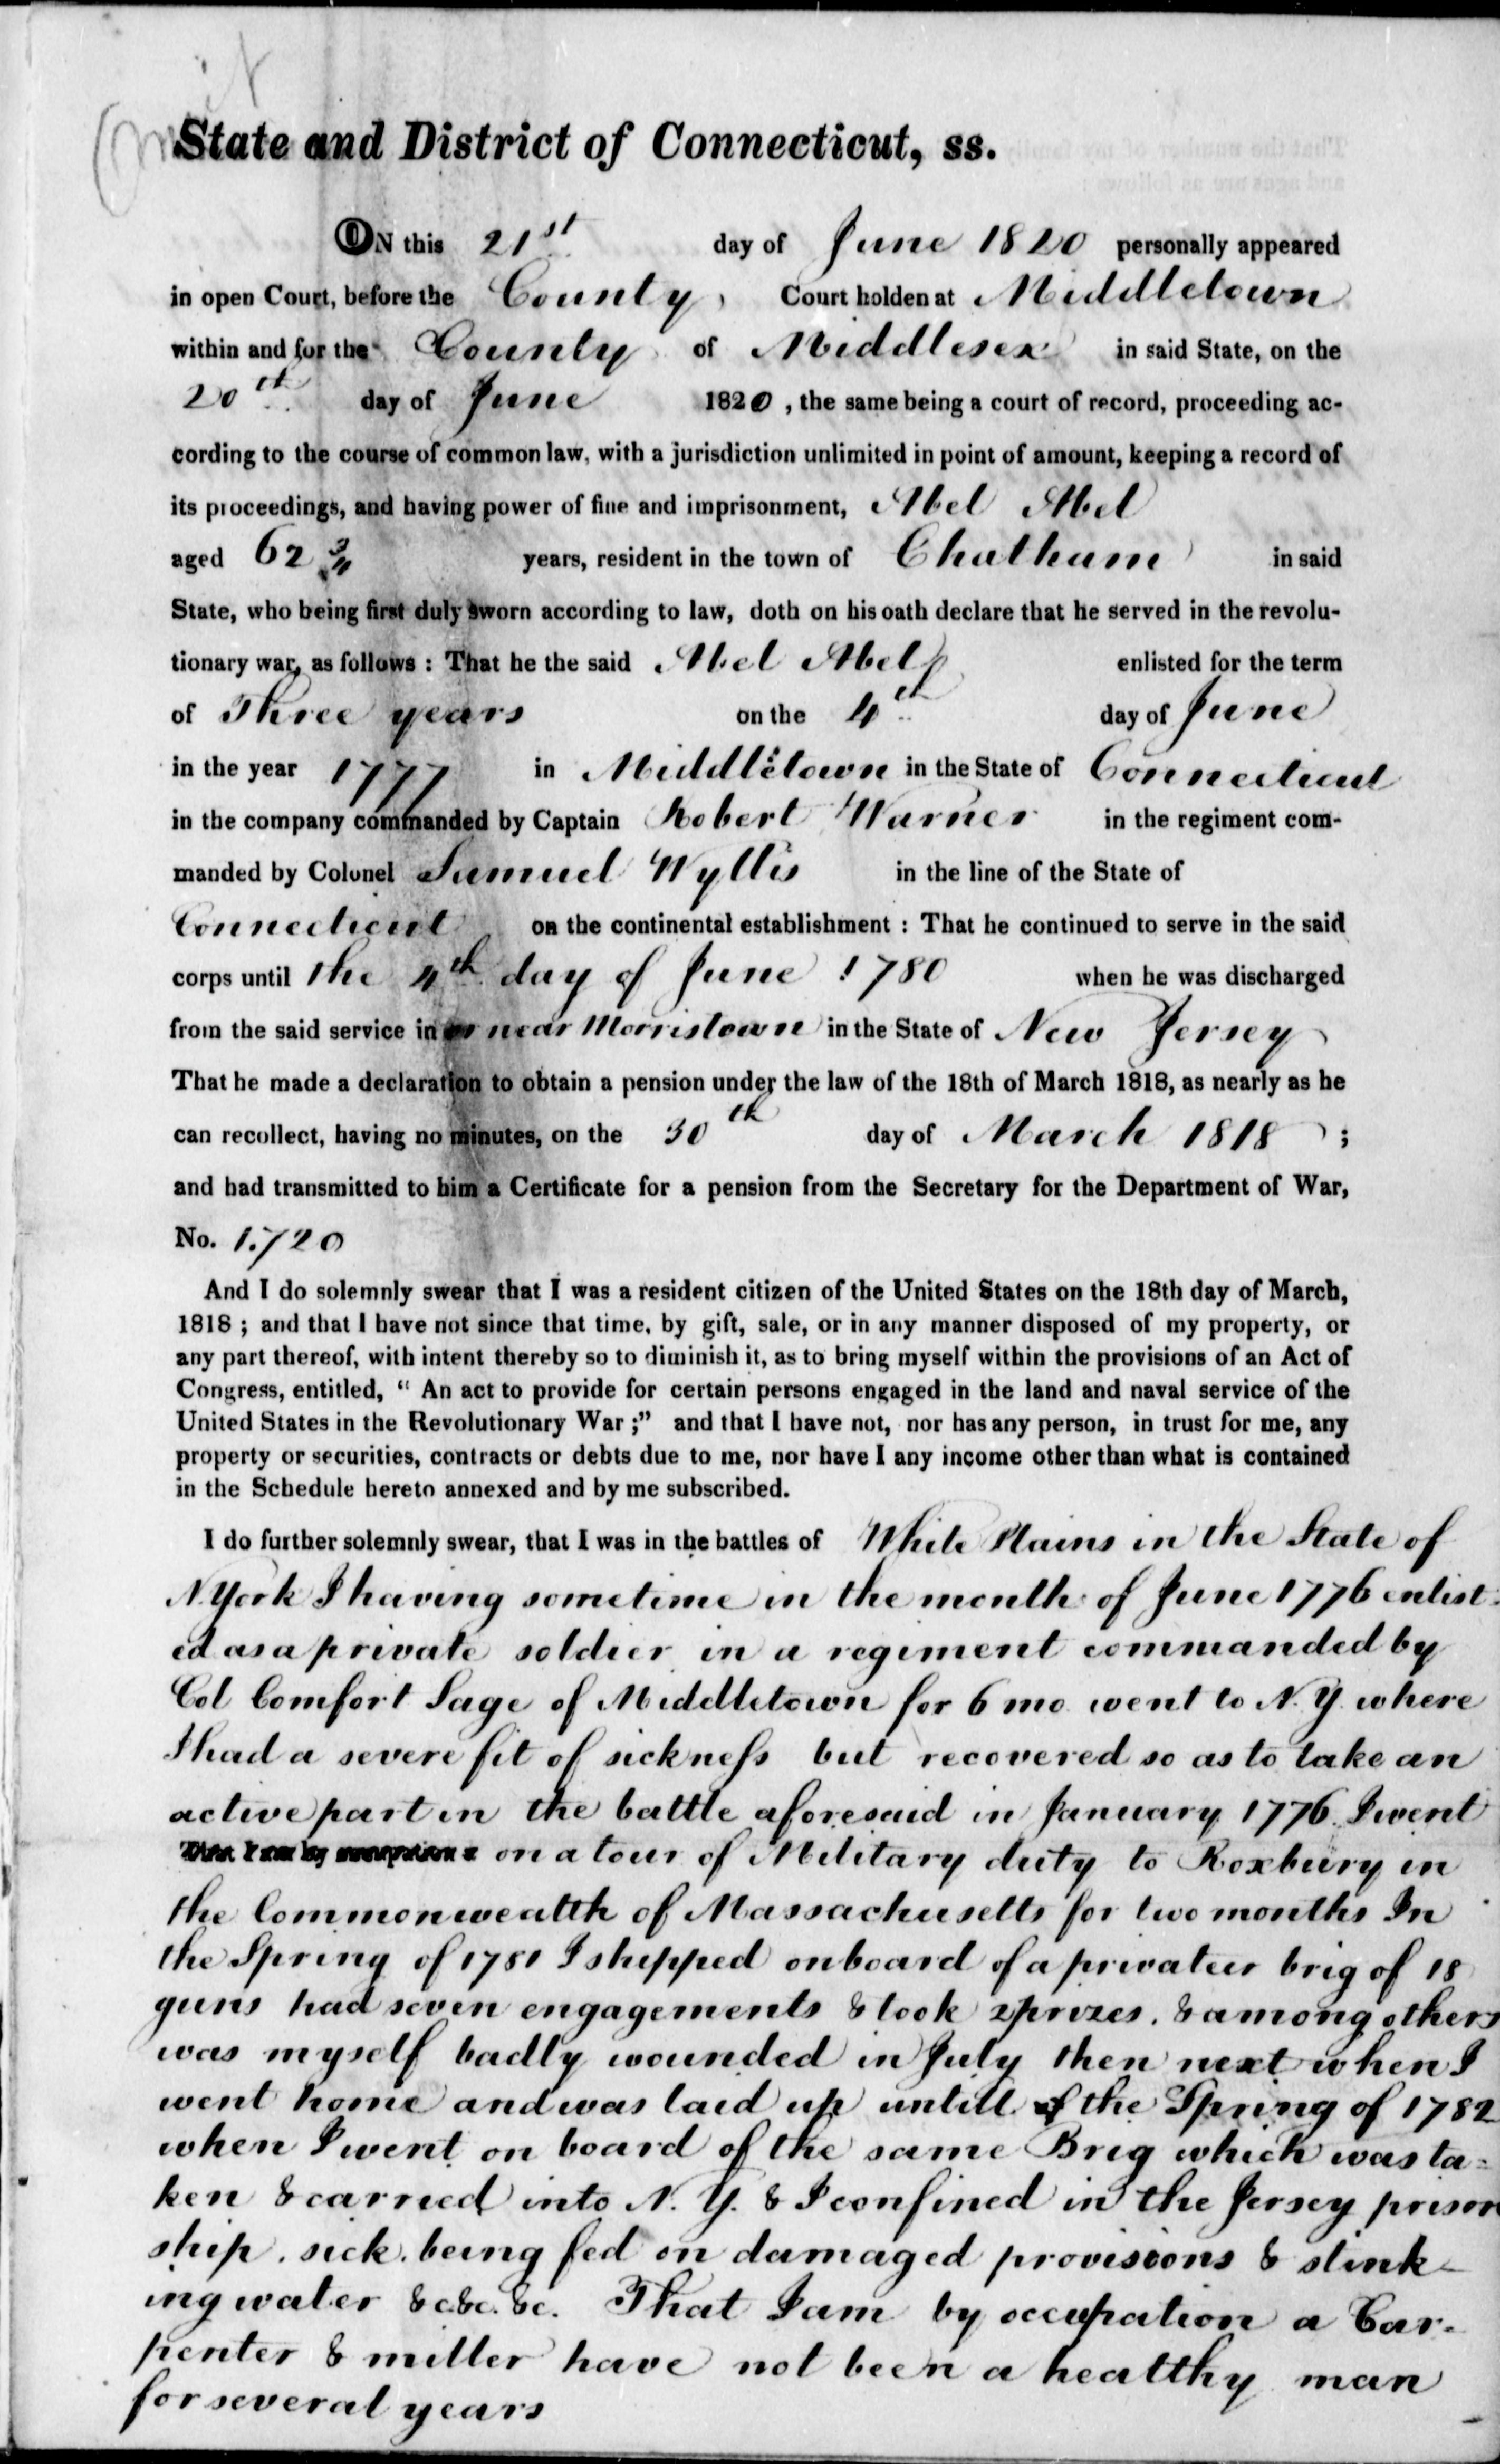 State and District of Connecticut, ss.
ON this 21st day of June 1820 personally appeared
in open Court, before the County Court holden at Middletown
within and for the County of Middlesex in said State, on the
20th day of June 1820, the same being a court of record, proceeding ac-
cording to the course of common law, with a jurisdiction unlimited in point of amount, keeping a record of
its proceedings, and having power of fine and imprisonment, Abel Abel
aged 62 3/4 years, resident in the town of Chatham in said
State, who being first duly sworn according to law, doth on his oath declare that he served in the revolu-
tionary war, as follows : That he the said Abel Abel enlisted for the term
of Three years on the 4th day of June
in the year 1777 in Middletown in the State of Connecticut
in the company commanded by Captain Robert Warner in the regiment com-
manded by Colonel Samuel Wyllis in the line of the State of
Connecticut on the continental establishment : That he continued to serve in the said
corps until the 4th day of June 1780 when he was discharged
from the said service in or near Morristown in the State of New Jersey
That he made a declaration to obtain a pension under the law of the 18th of March 1818, as nearly as he
can recollect, having no minutes, on the 30th day of March 1818 ;
and had transmitted to him a Certificate for a pension from the Secretary for the Department of War,
No. 1.720
And I do solemnly swear that I was a resident citizen of the United States on the 18th day of March,
1818 ; and that I have not since that time, by gift, sale, or in any manner disposed of my property, or
any part thereof, with intent thereby so to diminish it, as to bring myself within the provisions of an Act of
Congress, entitled, “ An act to provide for certain persons engaged in the land and naval service of the
United States in the Revolutionary War ;” and that I have not, nor has any person, in trust for me, any
property or securities, contracts or debts due to me, nor have I any income other than what is contained
in the Schedule hereto annexed and by me subscribed.
I do further solemnly swear, that I was in the battles of White Plains in the State of
N. York I having sometime in the month of June 1776 enlist-
ed as a private soldier in a regiment commanded by
Col Comfort Sage of Middletown for 6 mo went to N. Y. where
I had a severe fit of sickness but recovered so as to take an
active part in the battle aforesaid in January 1776. I went
on a tour of Military duty to Roxbury in
the Commonwealth of Massachusetts for two months In
the Spring of 1781 I shipped onboard of a privateer brig of 18
guns had seven engagements & took 2 prizes. & among others
was myself badly wounded in July then next when I
went home and was laid up untill the Spring of 1782
when I went on board of the same Brig which was ta=
ken & carried into N. Y. & I confined in the Jersey prison
ship. sick. being fed on damaged provisions & stink-
ing water &c. &c. &c. That I am by occupation a Car-
penter & miller have not been a healthy man
for several years